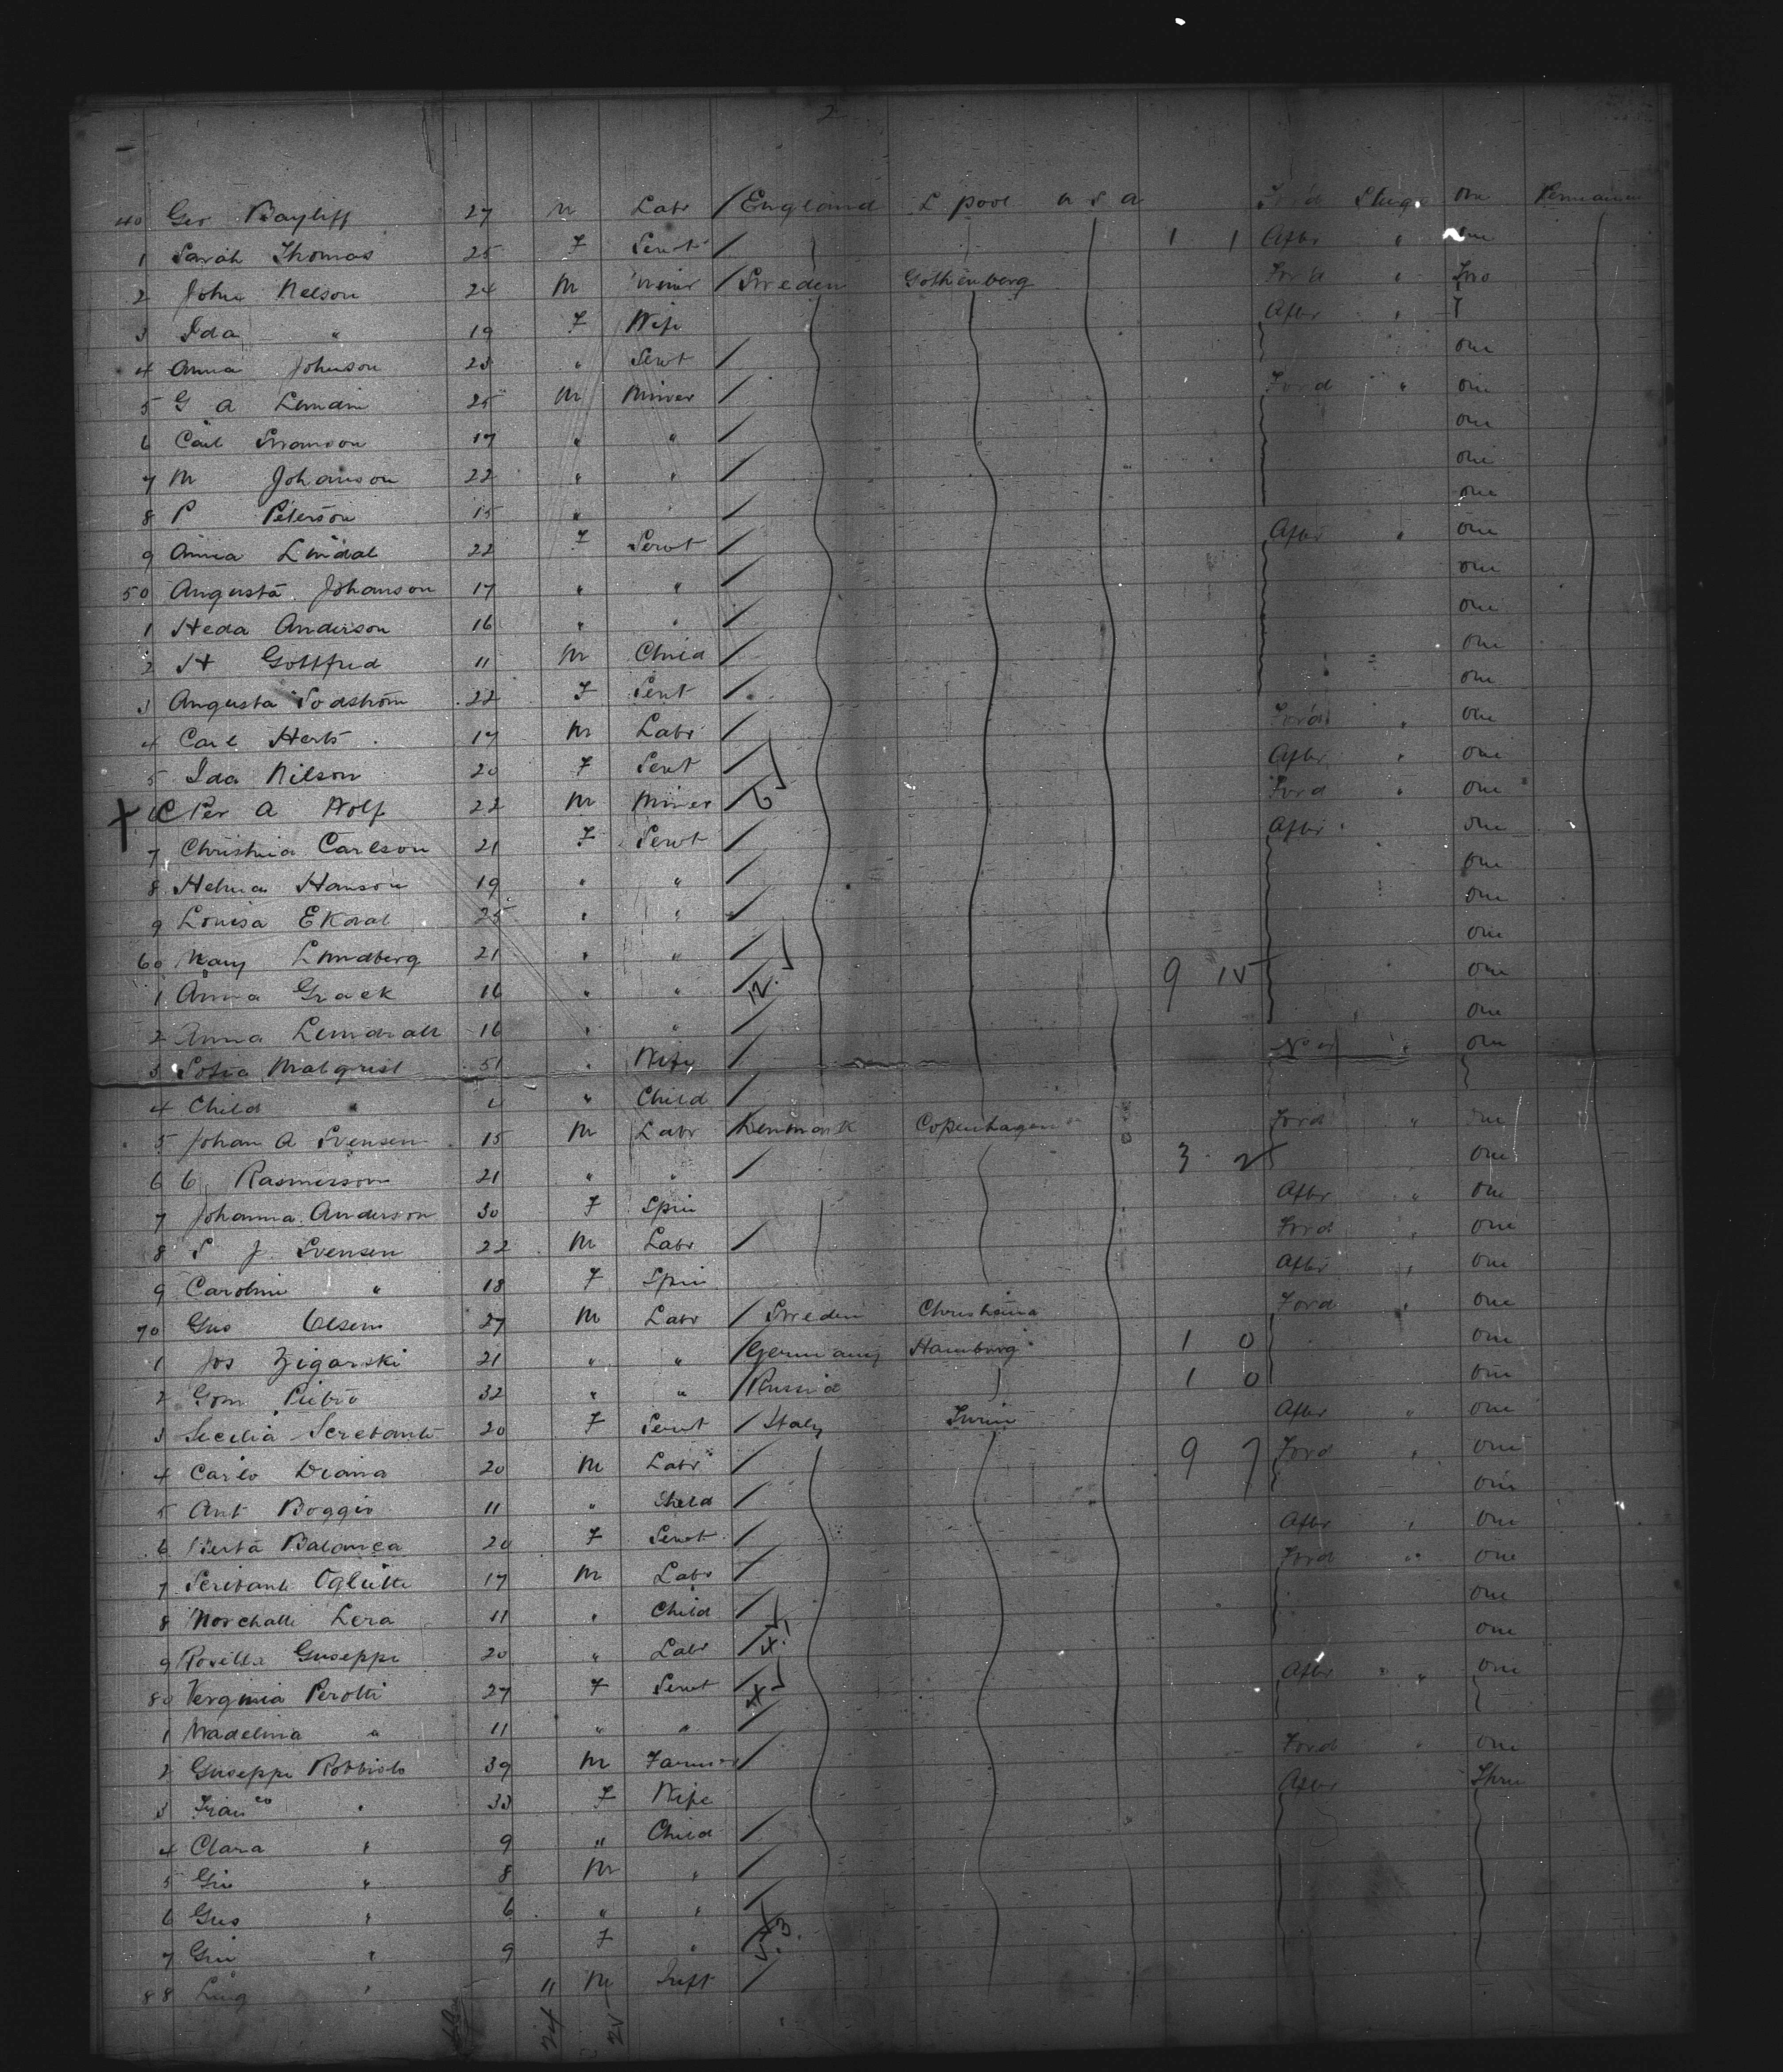 2
40 Geo Bayliff 27 m Labr / England L pool u s a Ford Sterage one Permanen
1 Sarah Thomas 25 F Servt / 1 1 After " one
2 John Nelson 24 M Miner / Sweden Gothenberg Ford " Two
3 Ida " 19 F Wife After "
4 Anna Johnson 23 " Servt / one
5 G A 25 M Miner / Ford " one
6 Carl Swanson 17 " " / one
7 M Johanson 22 " " / one
8 P Peterson 15 " / one
9 Anna Lindal 22 F Servt / After " one
50 Augusta Johanson 17 " " / one
1 Heda Anderson 16 " " / one
2 H Gottfried 11 M Child / one
3 Augusta Sodstrom 22 F Servt / one
4 Carl Herts 17 M Labr / Ford " one
5 Ida Nilson 20 F Servt / After " one
X 6 C Per A Wolf 22 M Miner / 6 Ford " one
7 Christina Carlson 21 F Servt / After " one
8 Helma Hanson 19 " " / one
9 Louisa Ekdal 25 " " / one
60 Mary Lundberg 21 " " / one
1 Anna Graek 16 " " / 12 9 15 one
2 Anna 16 " " / one
3 Sofia Malqrist 51 " Wife / " one
4 Child " " Child /
5 Johan A Svensen 15 M Labr / Denmark Copenhagen Ford " one
6 C Rasmussom 21 " " / 3 2 one
7 Johanna Anderson 30 F Spin After " one
8 S J Svensen 22 M Labr / Ford " one
9 Carolini " 18 F Spin After " one
70 Gus Olsen 27 M Labr / Sweden Christiania Ford " one
1 Jos Zigarski 21 " " / Germany Hamburg 1 0 one
2 Pietro 32 " " / Russia 1 0 one
3 Secilia 20 F Servt / Italy Turin After " one
4 Carlo Diana 20 M Labr / 9 7 Ford " one
5 Ant Boggio 11 " Child / one
6 Berta 20 F Servt / After " one
7 17 M Labr / Ford " one
8 Lera 11 " Child / one
9 Rosetta Guseppe 20 " Labr / one
80 Verginia Perotti 27 F Servt / After " one
1 Madelina " 11 " " /
2 Guseppe 39 M Farmer / Ford " one
3 Fran co " 33 F Wife After Three
4 Clara " 9 " Child /
5 Gio " 8 M " /
6 Gus " 6 " " /
7 Giu " 9 F " / 3
88 Luig " 11 M Inft /
24 25